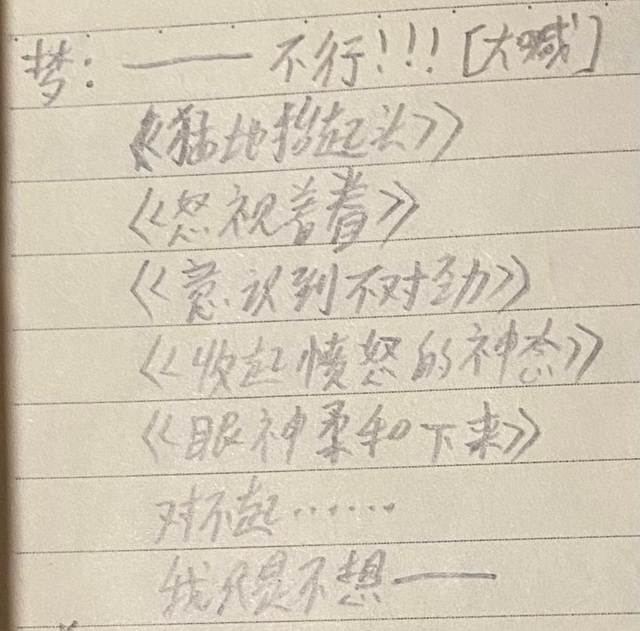 梦：——不行！！！[大喊]
《猛地抬起头》
《怒视着耆》
《意识到不对劲》
《收起愤怒的神态》
《眼神柔和下来》
对不起……
我只是不想——